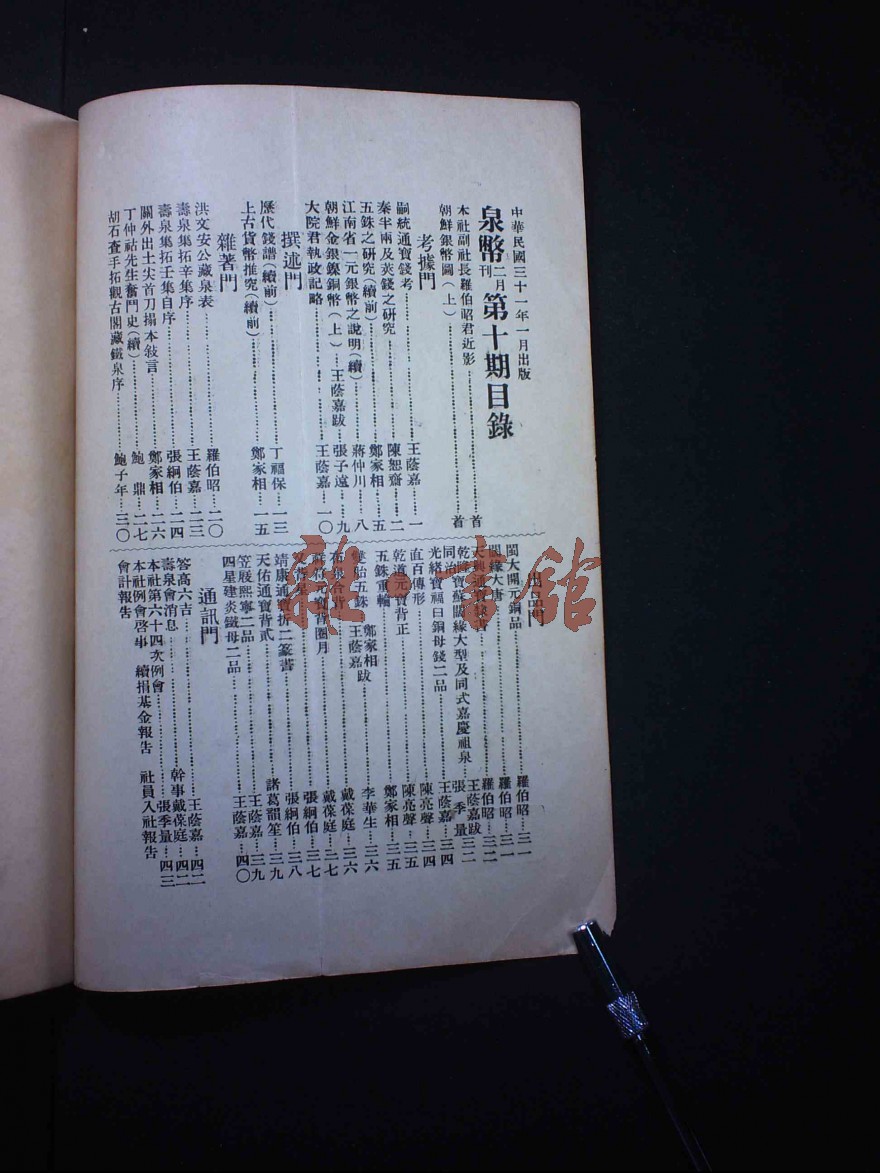 中華民國三十一年一月出版
泉幣二月刊第十期目錄
本社副社長羅伯昭君近影…首
朝鮮銀幣圖(上)…首
考據門
嗣統通寶錢考…王蔭嘉…一
秦半兩及莢錢之研究…陳恕齋…二
五銖之研究(續前)…鄭家相…五
江南省一元銀幣之說明(續)…蔣仲川…八
朝鮮金銀鎳銅幣(上)…王蔭嘉跋…張子遠…九
大院君執政記略…王蔭嘉…一〇
撰述門
歷代錢譜(續前)…丁福保…一三
上古貨幣推究(續前)…鄭家相…一五
雜著門
洪文安公藏泉表…羅伯昭…二〇
壽泉集拓辛集序…王蔭嘉…二三
壽泉集拓壬集自序…張絅伯…二四
關外出土尖首刀搨本敍言…鄭家相…二六
丁仲祜先生奮鬥史(續)…鮑鼎…二七
胡石查手拓觀古閣藏鐵泉序…鮑子年…三〇
出品門
閩大開元銅品…羅伯昭…三一
閩緣大唐…羅伯昭…三一
天興通寶隸書…羅伯昭…三二
乾隆寶蘇闊緣大型及同式嘉慶祖泉…王蔭嘉跋 張季量…三二
同治
光緒寶福曰銅母錢二品…王蔭嘉…三四
直百傳形…陳亮聲…三四
乾道元寶背正…陳亮聲…三五
五銖重輪…鄭家相…三五
五銖…鄭家相跋 王蔭嘉…李華生…三六
泉合背…戴葆庭…三六
寶背圈月…戴葆庭…三七
張絅伯…三七
張絅伯…三八
靖康通寶折二篆書…諸葛韻笙…三九
天佑通寶背貳…王蔭嘉…三九
笠屐熙寧二品
四星建炎鐵母二品…王蔭嘉…四〇
通訊門
答高六吉…王蔭嘉…四二
壽泉會消息…幹事戴葆庭…四二
本社第六十四次例會…張季量…四三
本社例會啓事 續捐基金報告 社員入社報告
會計報告